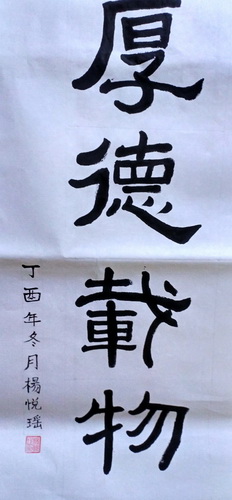 厚德載物
丁酉年冬月楊悦瑶